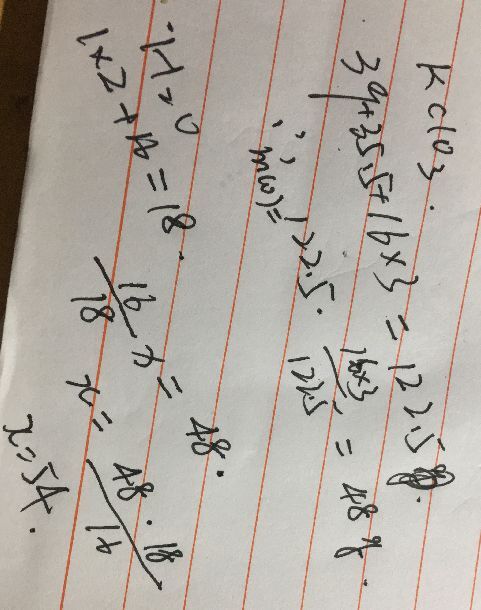 KClO3.
39+35.5+16×3 = 122.5
∴ m(O)= 122.5 · 16×3/122.5 = 48g.
H2O
1×2+16=18.
16/18 x = 48.
x = 48·18/16
x=54.